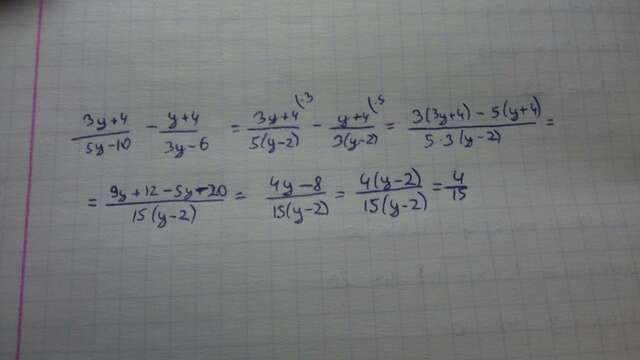 (3y+4)/(5y-10) - (y+4)/(3y-6) = (3y+4)/(5(y-2)) (·3 - (y+4)/(3(y-2)) (·5 = (3(3y+4) - 5(y+4))/(5·3(y-2)) =
= (9y+12-5y-20)/(15(y-2)) = (4y-8)/(15(y-2)) = (4(y-2))/(15(y-2)) = 4/15